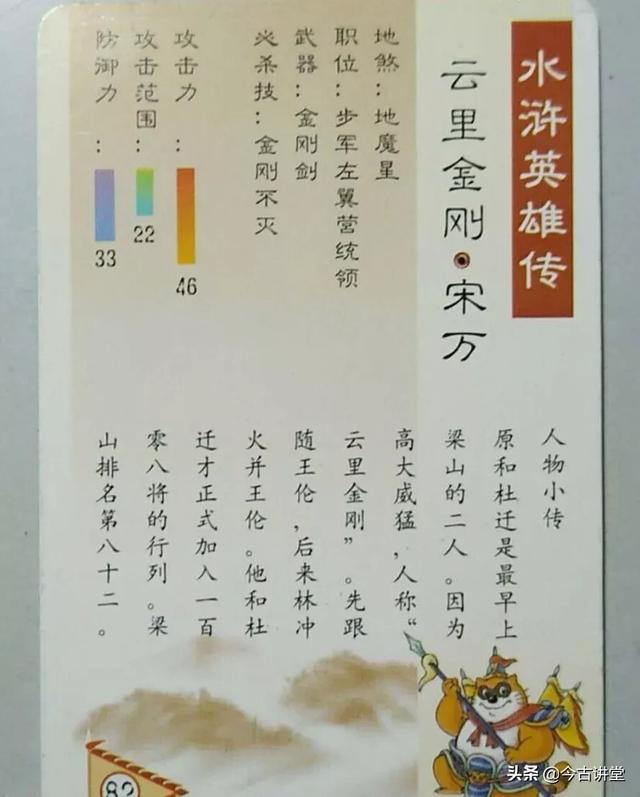 水浒英雄传
云里金刚·宋万
地煞：地魔星
职位：步军左翼营统领
武器：金刚剑
必杀技：金刚不灭
攻击力：
46
攻击范围：
22
防御力：
33
人物小传
原和杜迁是最早上
梁山的二人。因为
高大威猛，人称“
云里金刚”。先跟
随王伦，后来林冲
火并王伦。他和杜
迁才正式加入一百
零八将的行列。梁
山排名第八十二。
82
头条 @今古讲堂